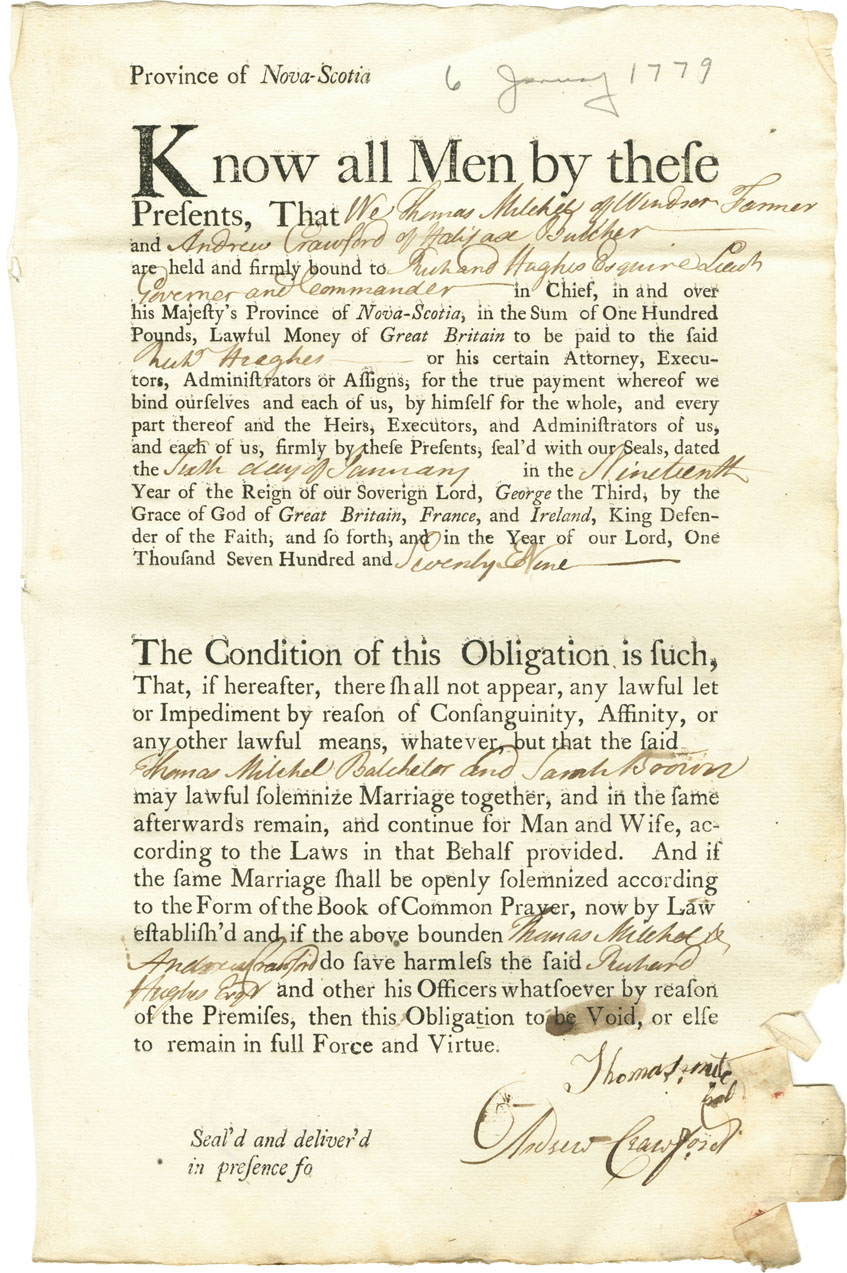 Province of Nova-Scotia 6 January 1779
Know all Men by theſe
Preſents, That We Thomas Mitchel of Windsor Farmer
and Andrew Crawford of Halifax Butcher
are held and firmly bound to Richard Hughes Esquire Lieut
Governer and Commander in Chief, in and over
his Majeſty's Province of Nova-Scotia, in the Sum of One Hundred
Pounds, Lawful Money of Great Britain to be paid to the ſaid
Richd Hughes or his certain Attorney, Execu-
tors, Adminiſtrators or Aſſigns, for the true payment whereof we
bind ourſelves and each of us, by himſelf for the whole, and every
part thereof and the Heirs, Executors, and Adminiſtrators of us,
and each of us, firmly by theſe Preſents, ſeal'd with our Seals, dated
the Sixth day of January in the Nineteenth
Year of the Reign of our Soverign Lord, George the Third, by the
Grace of God of Great Britain, France, and Ireland, King Defen-
der of the Faith, and ſo forth, and in the Year of our Lord, One
Thouſand Seven Hundred and Seventy Nine
The Condition of this Obligation is ſuch,
That, if hereafter, there ſhall not appear, any lawful let
or Impediment by reaſon of Conſanguinity, Affinity, or
any other lawful means, whatever, but that the ſaid
Thomas Mitchel Batchelor and Sarah Brown
may lawful ſolemnize Marriage together, and in the ſame
afterwards remain, and continue for Man and Wife, ac-
cording to the Laws in that Behalf provided. And if
the ſame Marriage ſhall be openly ſolemnized according
to the Form of the Book of Common Prayer, now by Law
eſtabliſh'd and if the above bounden Thomas Mitchel &
Andrew Crawford do ſave harmleſs the ſaid Richard
Hughes Esqr and other his Officers whatſoever by reaſon
of the Premiſes, then this Obligation to be Void, or elſe
to remain in full Force and Virtue.
Thomas
Andrew Crawford
Seal'd and deliver'd
in preſence fo